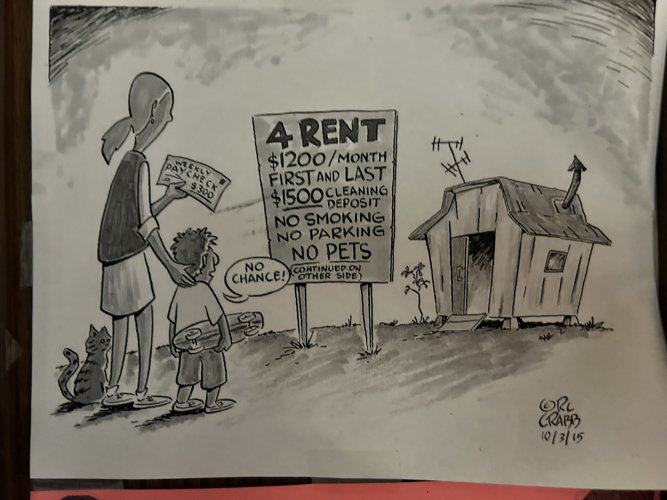 WEEKLY
PAYCHECK
$300
4 RENT
$1200/MONTH
FIRST AND LAST
$1500 CLEANING
DEPOSIT
NO SMOKING
NO PARKING
NO PETS
(CONTINUED ON
OTHER SIDE)
NO
CHANCE!
© RL
CRABB
10/3/15